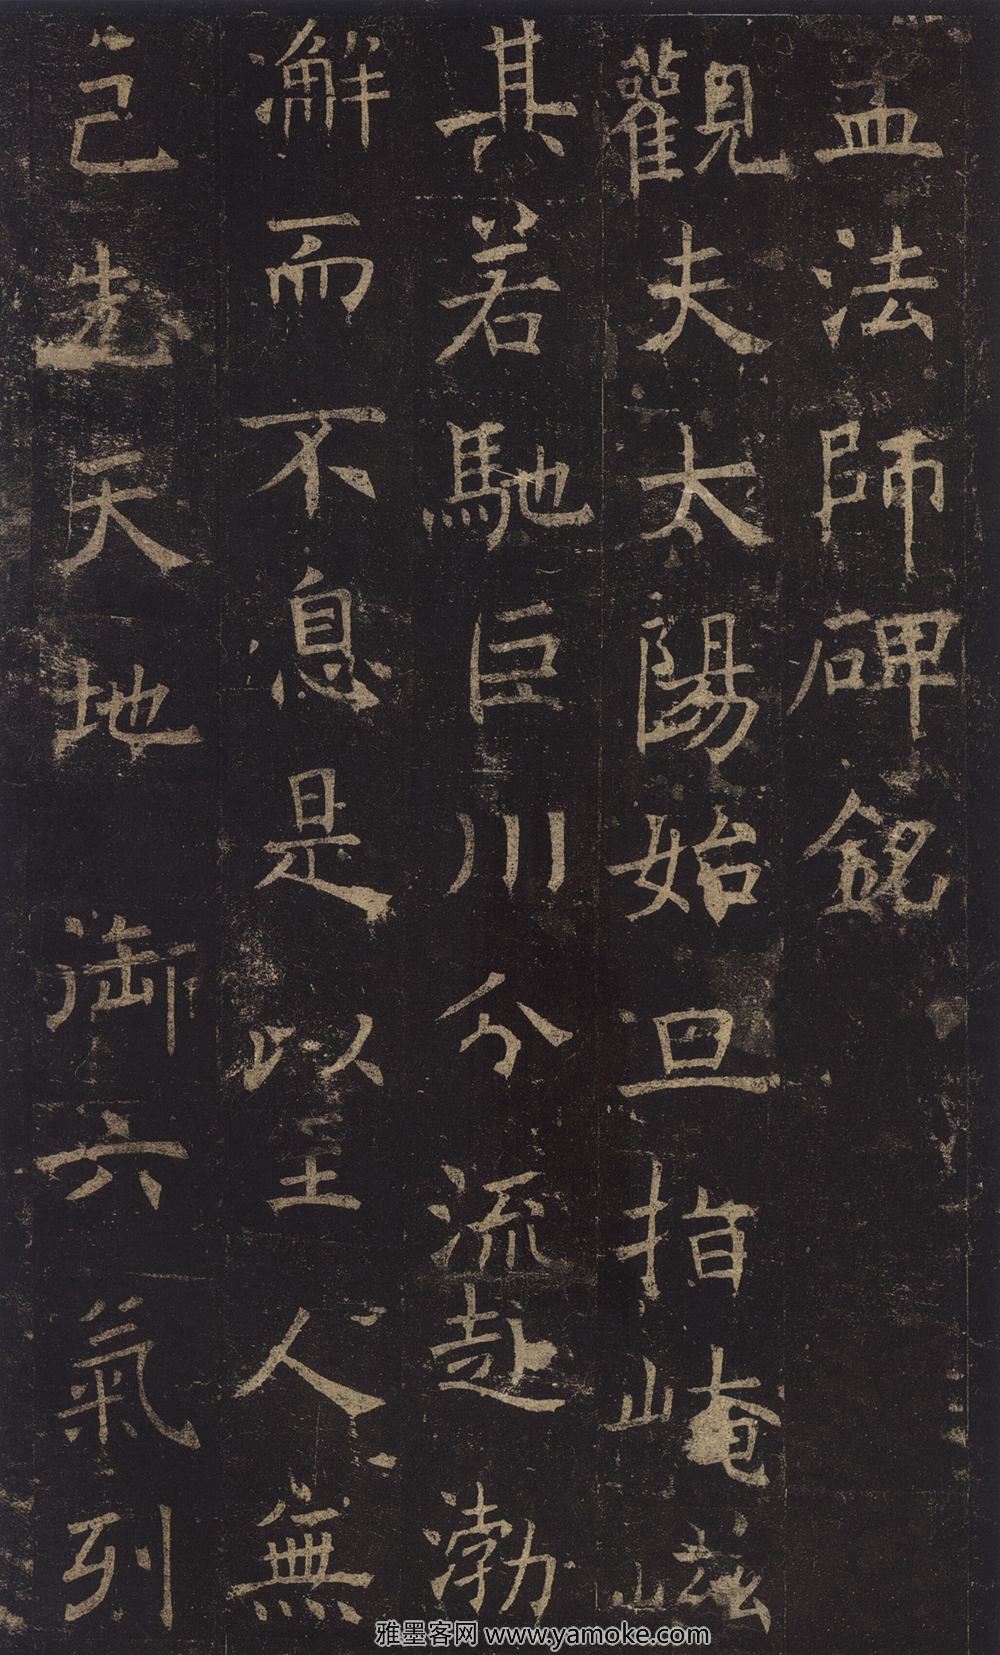 孟法師碑銘
觀夫太陽始旦指崦嵫
其若馳巨川分流赴渤
澥而不息是以至人無
己先天地御六氣列
雅墨客网 www.yamoke.com